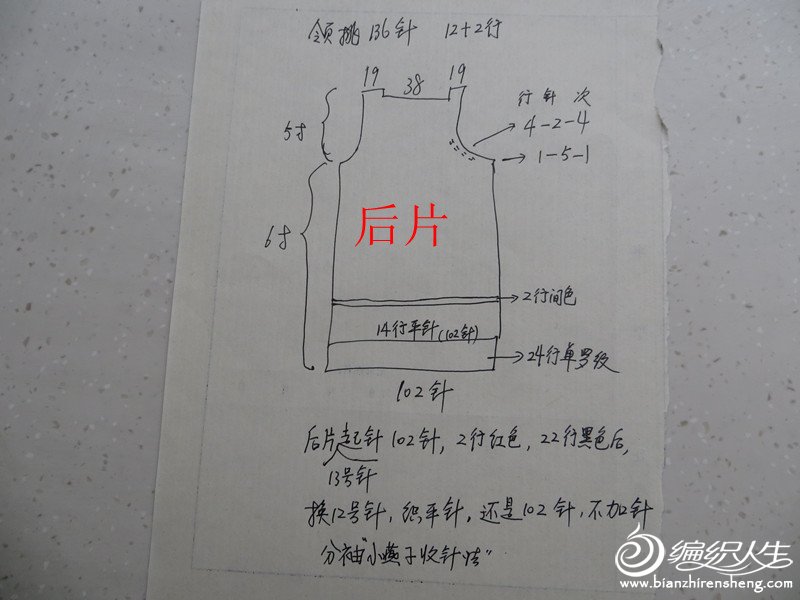 领挑136针 12+2行
19 38 19
行 针 次
4-2-4
1-5-1
5寸
后片
6寸
2行间色
14行平针(102针)
24行单罗纹
102针
后片起针102针,2行红色,22行黑色后,
13号针
换12号针,织平针,还是102针,不加针
分袖"小燕子收针法"
编织人生
www.bianzhirensheng.com